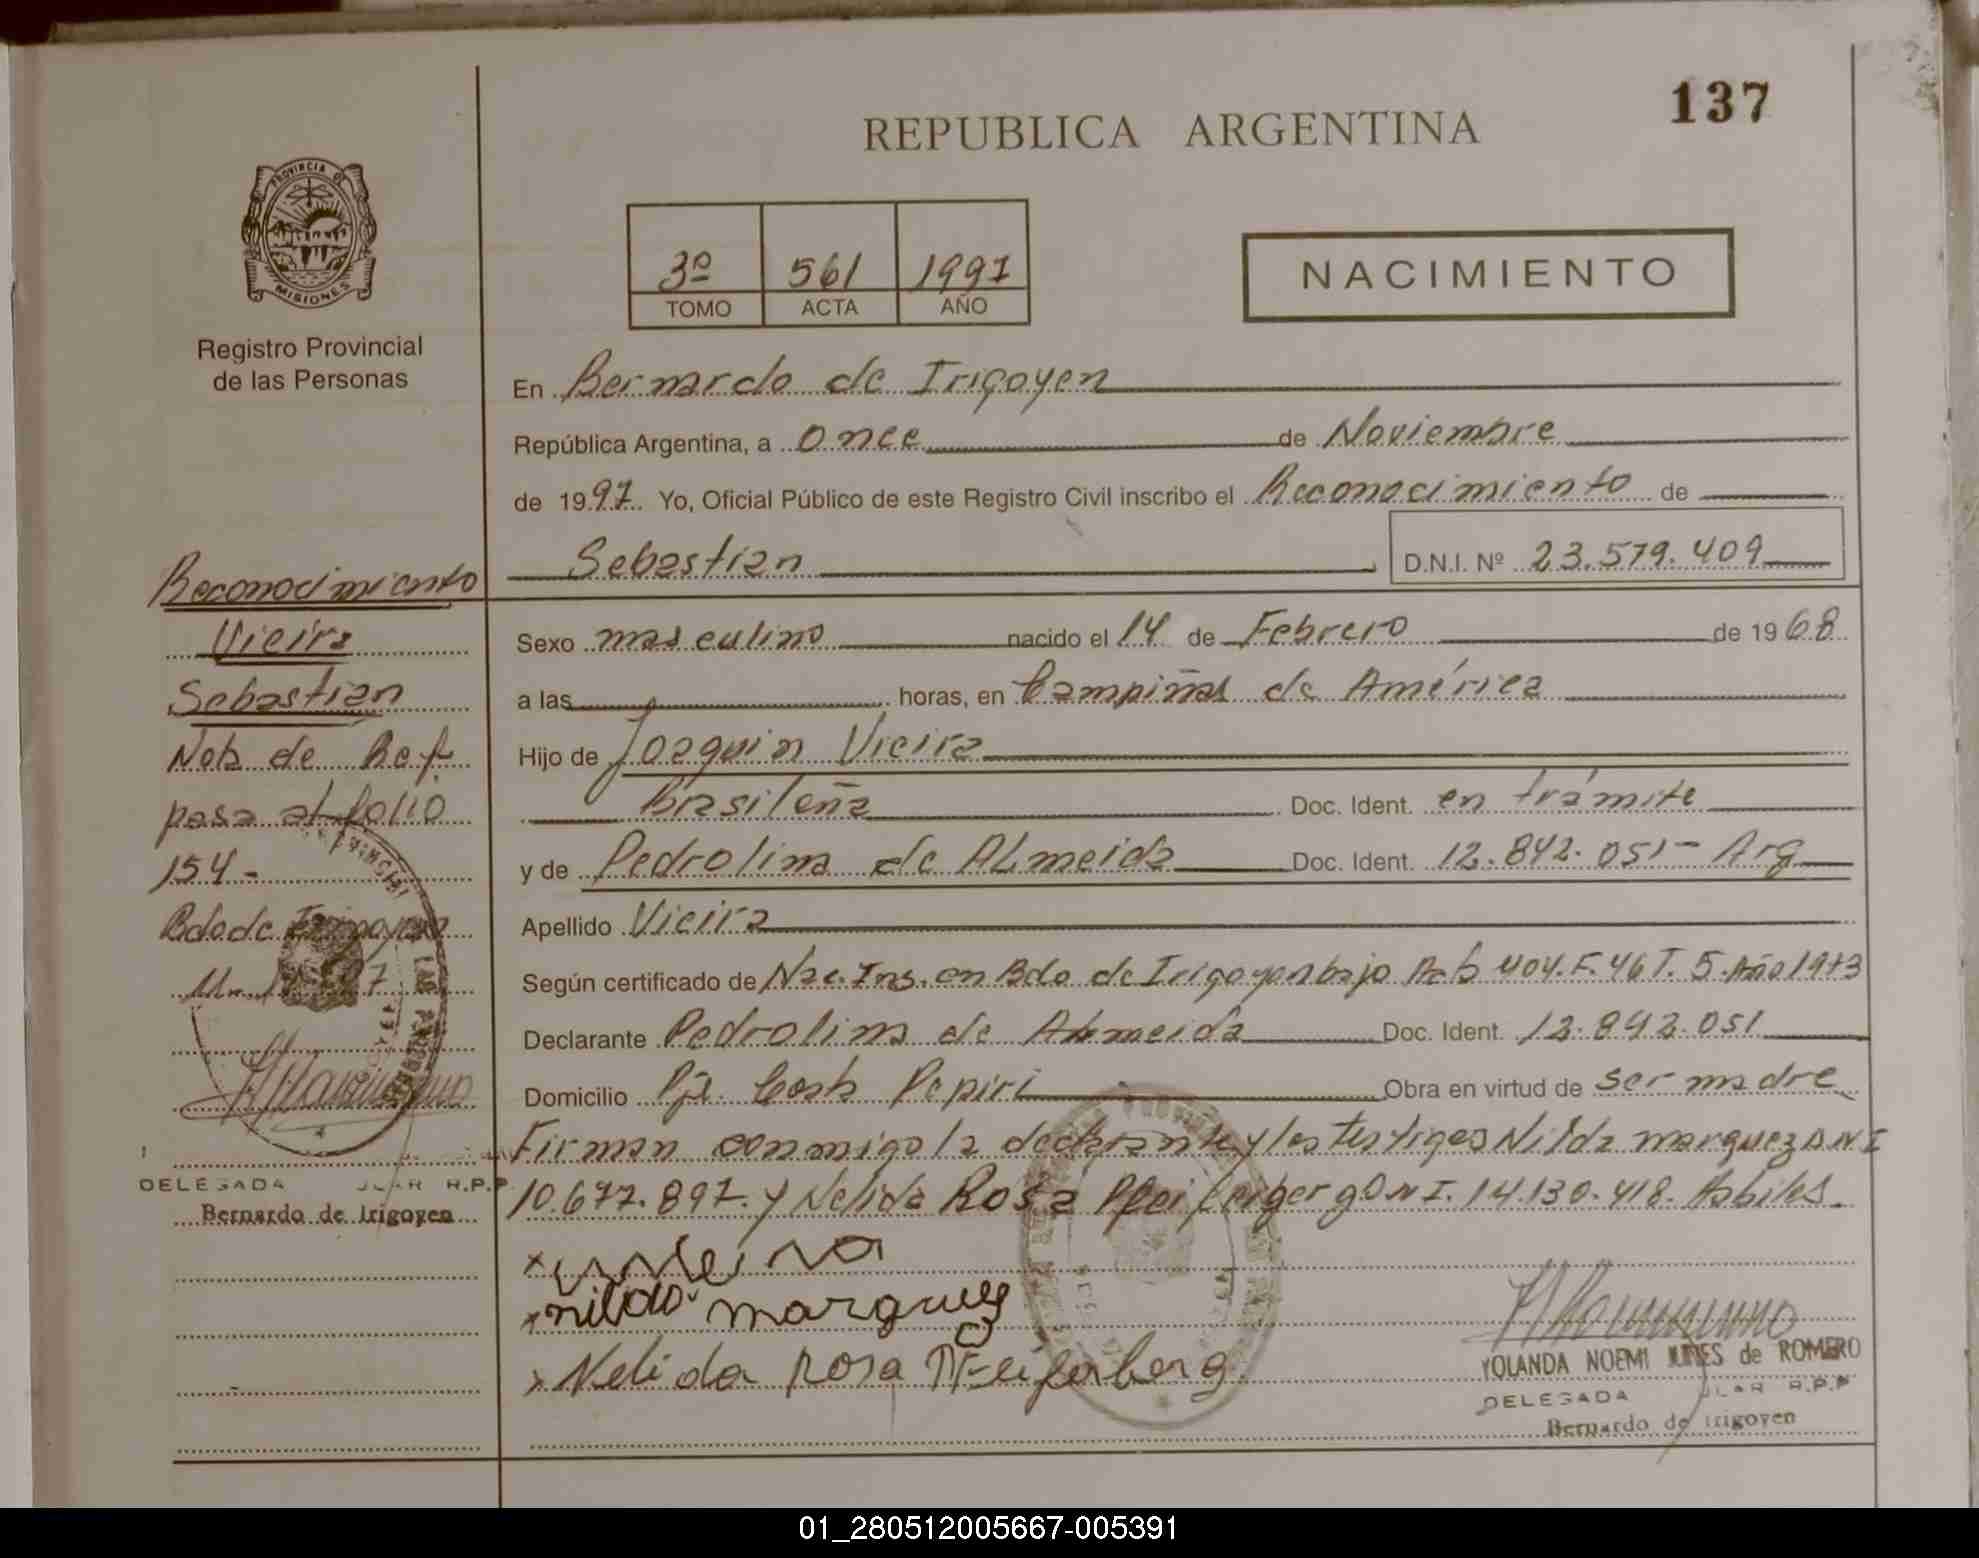 137
REPUBLICA ARGENTINA
PROVINCIA DE
MISIONES
3º 561 1997
TOMO ACTA AÑO
NACIMIENTO
Registro Provincial
de las Personas
En Bernardo de Irigoyen
República Argentina, a once de Noviembre
de 1997. Yo, Oficial Público de este Registro Civil inscribo el Reconocimiento de
Sebastian D.N.I. Nº 23.579.409
Reconocimiento
Vieira
Sebastian
Nota de Ref
pasa al folio
154-
Bdo de Irigoyen
DELEGADA R.P.P
Bernardo de Irigoyen
Sexo masculino nacido el 14 de Febrero de 1968
a las horas, en Campiñas de América
Hijo de Joaquin Vieira
Brasileña Doc. Ident. en trámite
y de Pedrolina de Almeida Doc. Ident. 12.842.051- Arg
Apellido Vieira
Según certificado de Nac. Ins. en Bdo de Irigoyen bajo Acta 404. F. 46 T. 5. Año 1973
Declarante Pedrolina de Almeida Doc. Ident. 12.842.051
Domicilio Pje. Costa Pepiri Obra en virtud de ser madre
Firman conmigo la declarante y los testigos Nilda marquez DNI
10.677.897. y Nelida Rosa DNI. 14.130.418. Habiles.
x
x nilda marquez
x Nelida Rosa Pfeiferberg
YOLANDA NOEMI de ROMERO
DELEGADA R.P.P
Bernardo de Irigoyen
01_280512005667-005391